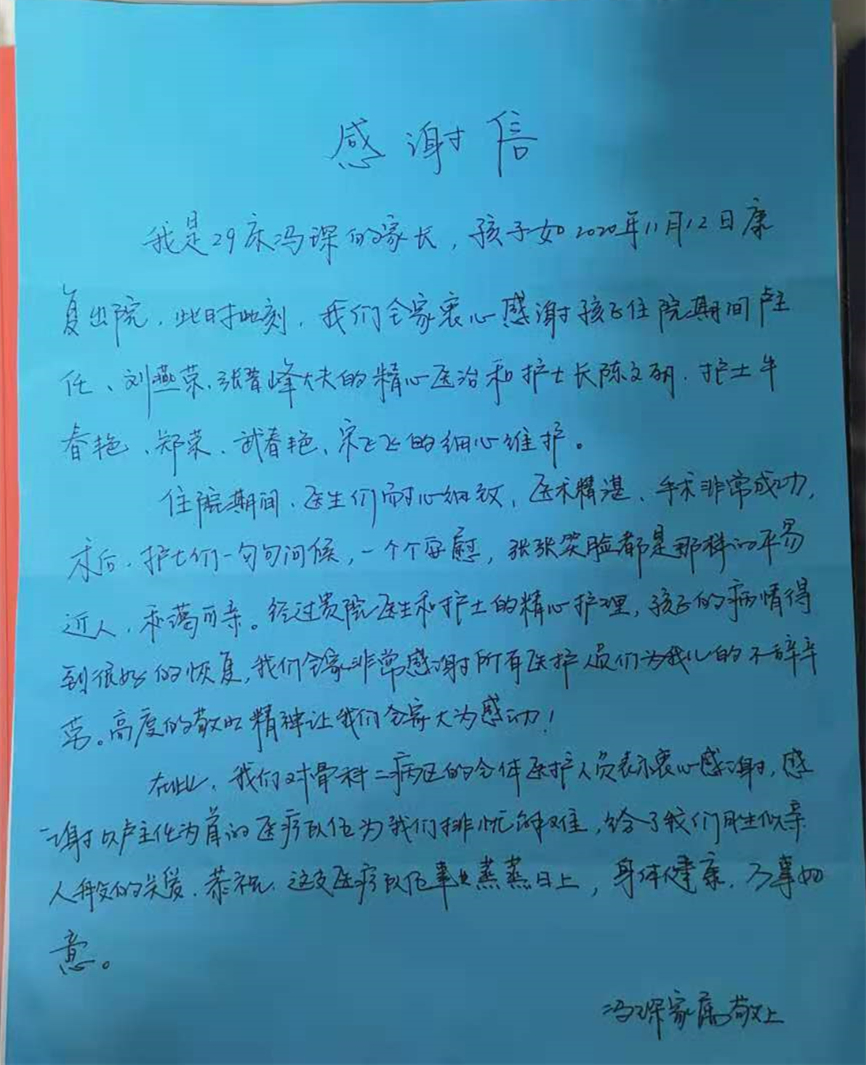 感谢信
我是29床冯琛的家长，孩子如2020年11月12日康
复出院，此时此刻，我们全家衷心感谢孩子住院期间卢主
任、刘燕荣、张晋峰大夫的精心医治和护士长陈文硕、护士牛
春艳、郑荣、武春艳、宋飞飞的细心维护。
住院期间，医生们耐心细致，医术精湛，手术非常成功，
术后，护士们一句句问候，一个个安慰，张张笑脸都是那样的平易
近人，和蔼可亲。经过贵院医生和护士的精心护理，孩子的病情得
到很好的恢复，我们全家非常感谢所有医护人员们为我儿的不辞辛
劳。高度的敬业精神让我们全家大为感动！
在此，我们对骨科二病区的全体医护人员表示衷心感谢，感
谢以卢主任为首的医疗队伍为我们排忧解难，给了我们胜似亲
人般的关爱，恭祝，这支医疗队伍事业蒸蒸日上，身体健康，万事如
意。
冯琛家属敬上